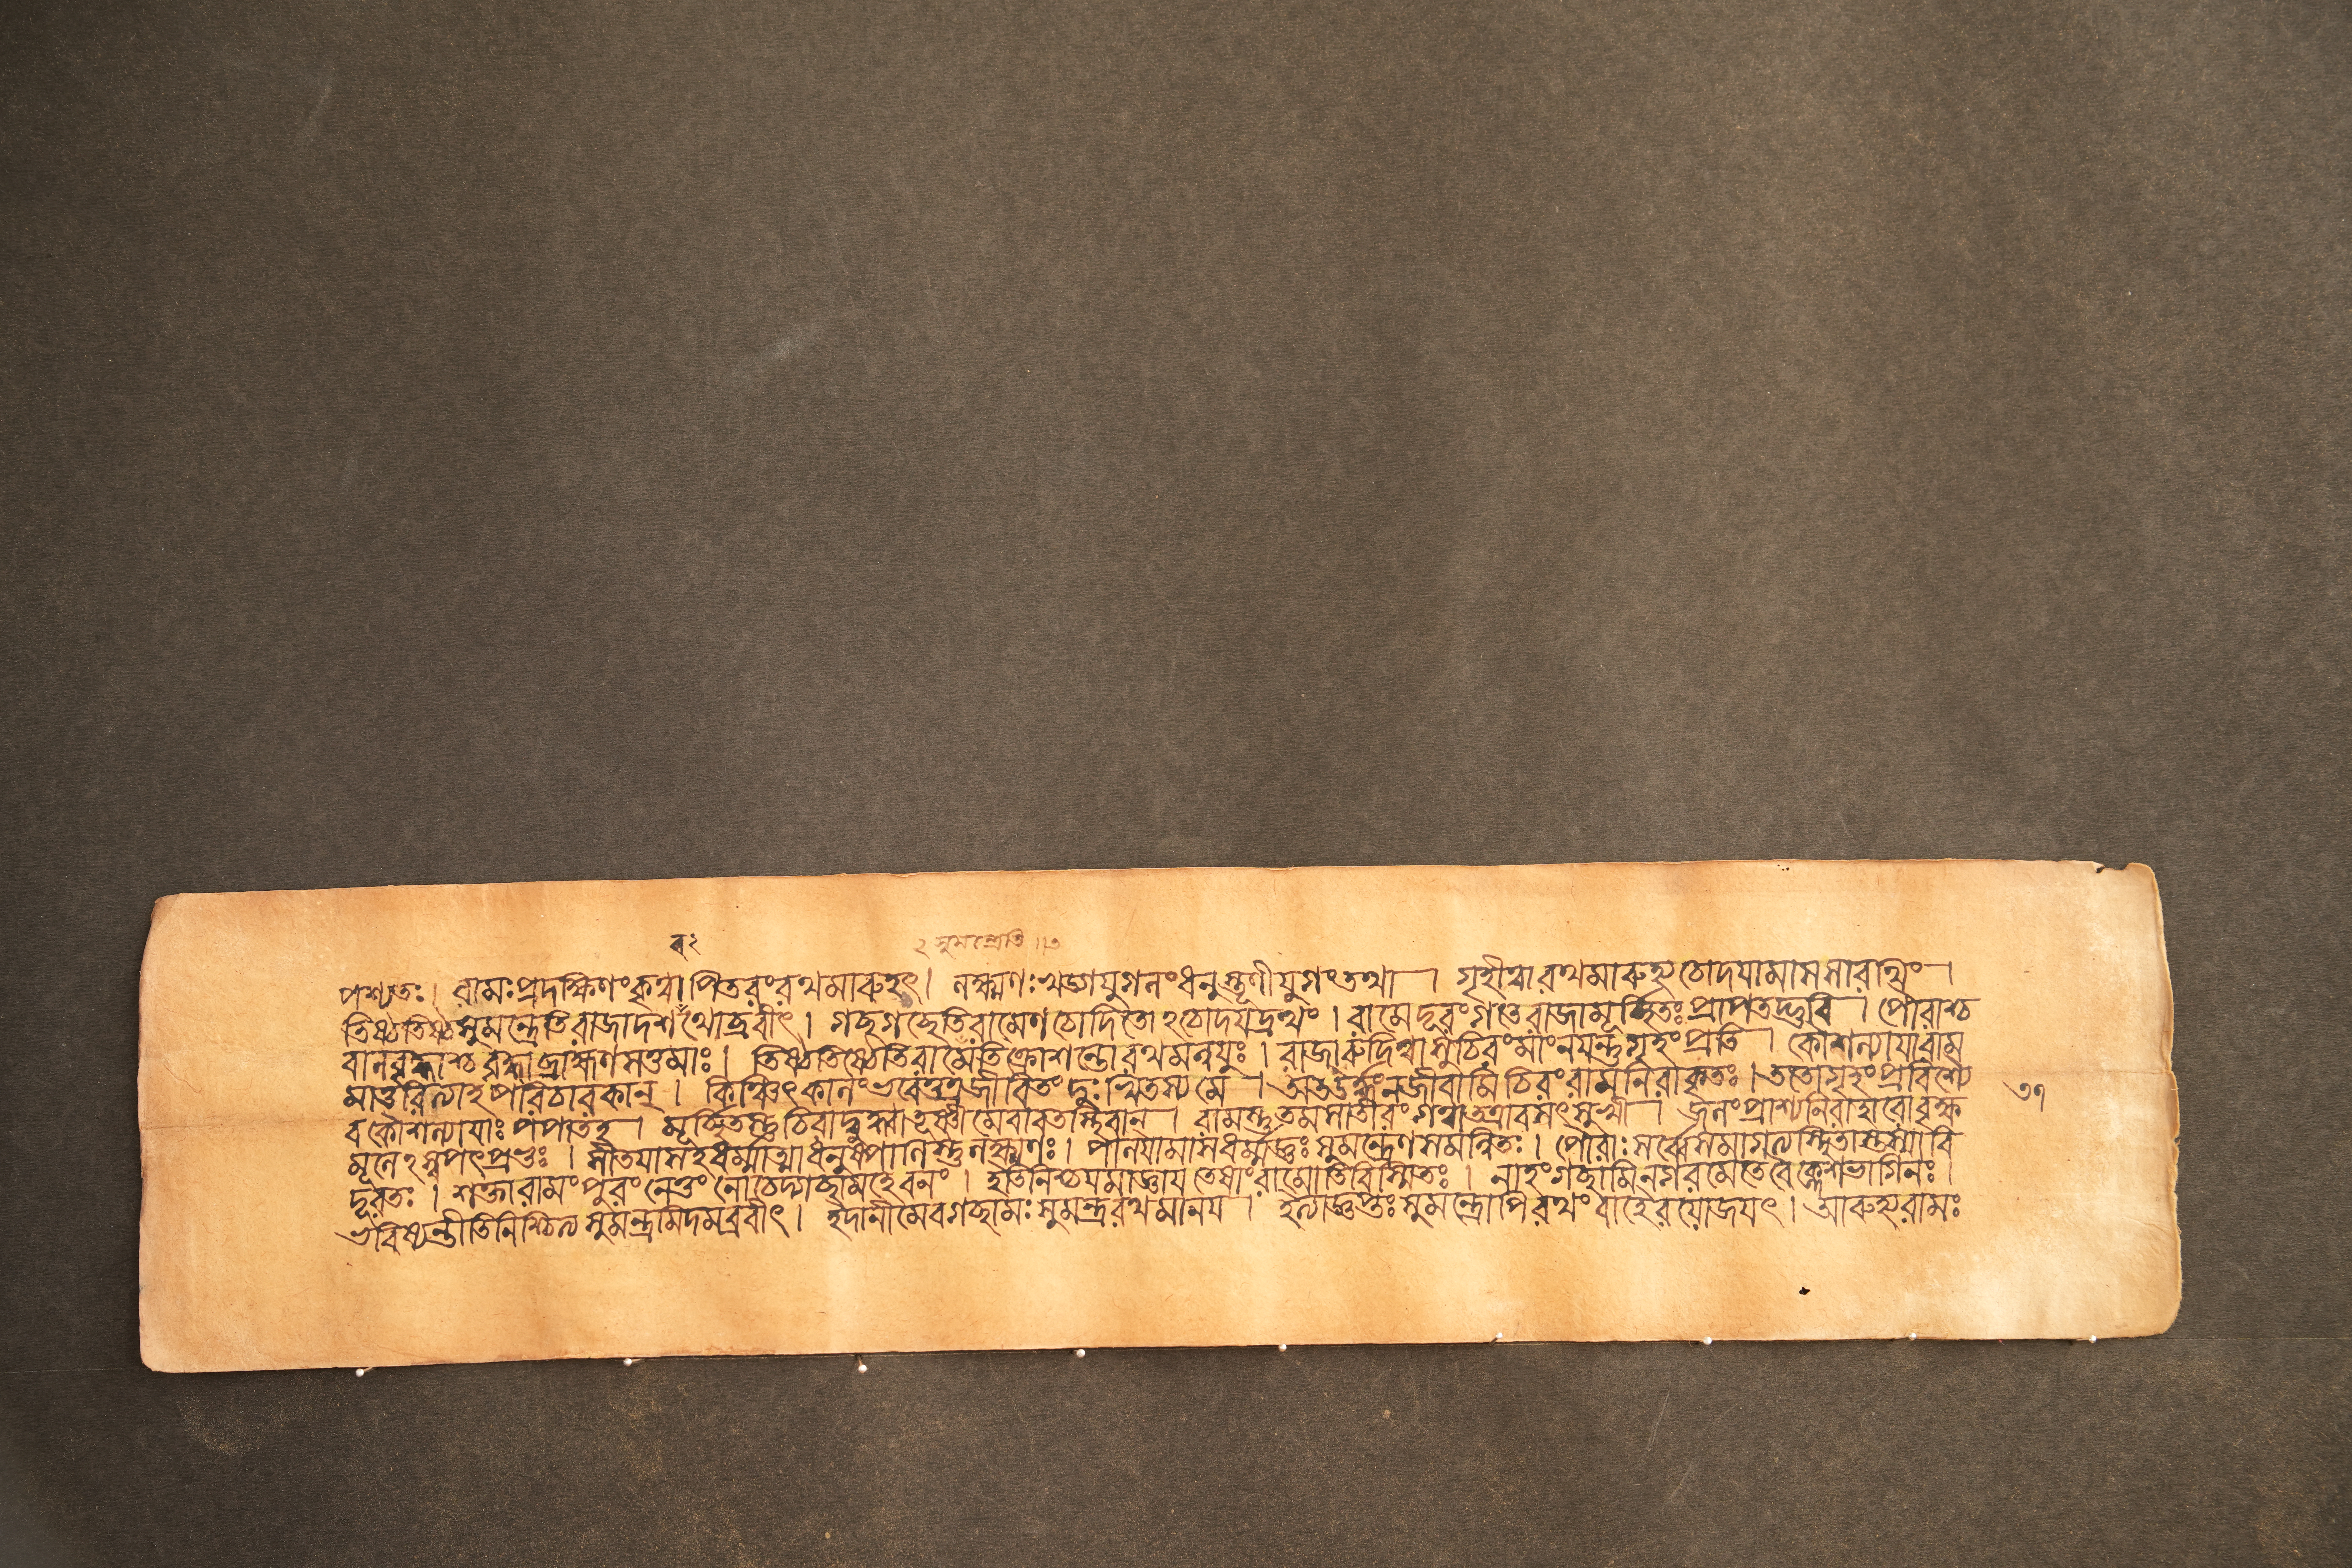 ব২ ২ সুমন্ত্রেতি ॥৩
পশ্যতঃ। রামঃপ্রদক্ষিণংকৃত্বাপিতরংরথমারুহৎ। লক্ষ্মণঃখড্গযুগলংধনুস্তূণীযুগংতথা। গৃহীত্বারথমারুহ্যচোদযামাসসারথিং।
তিষ্ঠতিষ্ঠসুমন্ত্রেতিরাজাদশরথোব্রবীৎ। গচ্ছগচ্ছেতিরামেণচোদিতোঽচোদযদ্রথং। রামেদূরংগতেরাজামূর্চ্ছিতঃপ্রাপতদ্ভুবি। পৌরাশ্চ
বালবৃদ্ধাশ্চবৃদ্ধাব্রাহ্মণসত্তমাঃ। তিষ্ঠতিষ্ঠেতিরামেতিক্রোশন্তোরথমন্বযুঃ। রাজারুদিত্বাসুচিরংমাংনযন্তুগৃহংপ্রতি। কৌশল্যাযারাম
মাতুরিত্যাহপরিচারকান্। কিঞ্চিৎকালংভবেত্তত্রজীবিতংদুঃখিতস্যমে। অতঊর্দ্ধ্বংনজীবামিচিরংরামনিরাকৃতঃ। ততোগৃহংপ্রবিশ্যৈ ৩৭
বকৌশল্যাযাঃপপাতহ। মূর্চ্ছিতশ্চচিরাদ্বুদ্ধ্বাতূষ্ণীমেবাবতস্থিবান্। রামস্তুতমসাতীরংগত্বাতত্রাবসৎসুখী। জলংপ্রাশ্যনিরাহারোবৃক্ষ
মূলেঽস্বপৎপ্রভুঃ। সীতযাসহধর্ম্মাত্মাধনুষ্পাণিস্তুলক্ষ্মণঃ। পালযামাসধর্ম্মজ্ঞঃসুমন্ত্রেণসমন্বিতঃ। পৌরাঃসর্ব্বেসমাগত্যস্থিতাস্তস্যাবি
দূরতঃ। শক্তারামংপুরংনেতুংনোচেদ্গচ্ছামহেবনং। ইতিনিশ্চযমাজ্ঞাযতেষাংরামোতিবিস্মিতঃ। নাহংগচ্ছামিনগরমেতেবৈক্লেশভাগিনঃ।
ভবিষ্যন্তীতিনিশ্চিত্যসুমন্ত্রমিদমব্রবীৎ। ইদানীমেবগচ্ছামঃসুমন্ত্ররথমানয। ইত্যাজ্ঞপ্তঃসুমন্ত্রোপিরথংবাহৈরযোজযৎ। আরুহ্যরামঃ